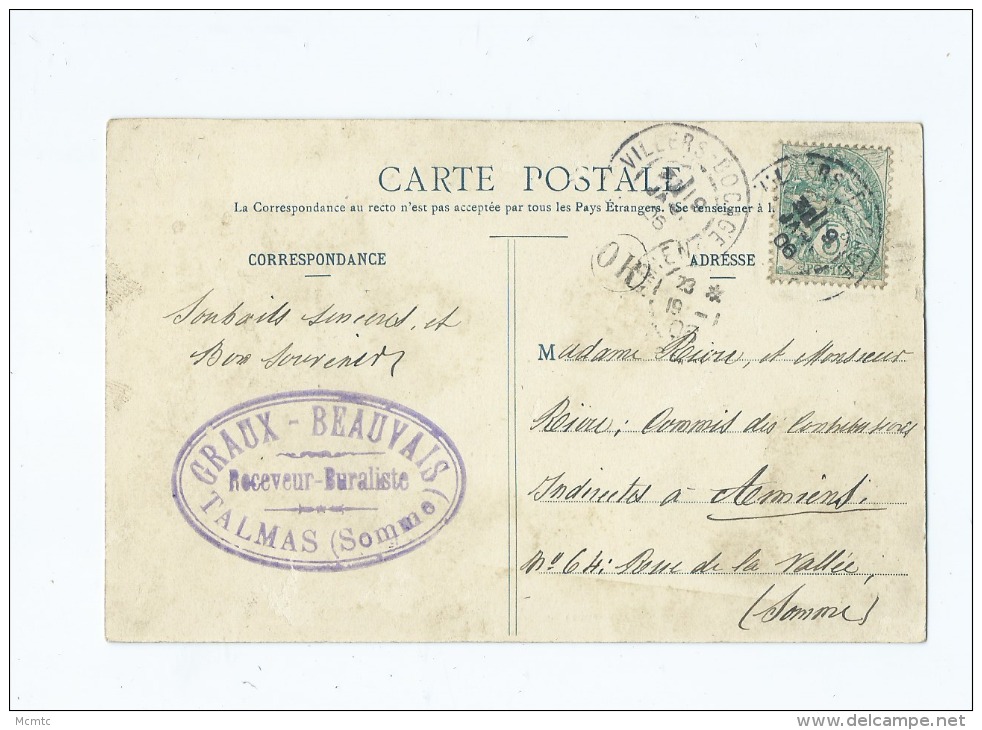 CARTE POSTALE
La Correspondance au recto n'est pas acceptée par tous les Pays Étrangers. (Se renseigner à l
CORRESPONDANCE
ADRESSE
VILLERS-BOCAGE
OR
Souhaits sincères, et
Bon Souvenir
Madame Rivre, et Monsieur
Rivre; Commis des Contributions
Indirectes à Amiens.
N° 64; Rue de la Vallée,
(Somme)
GRAUX - BEAUVAIS
Receveur-Buraliste
TALMAS (Somme)
Mcmtc
www.delcampe.net